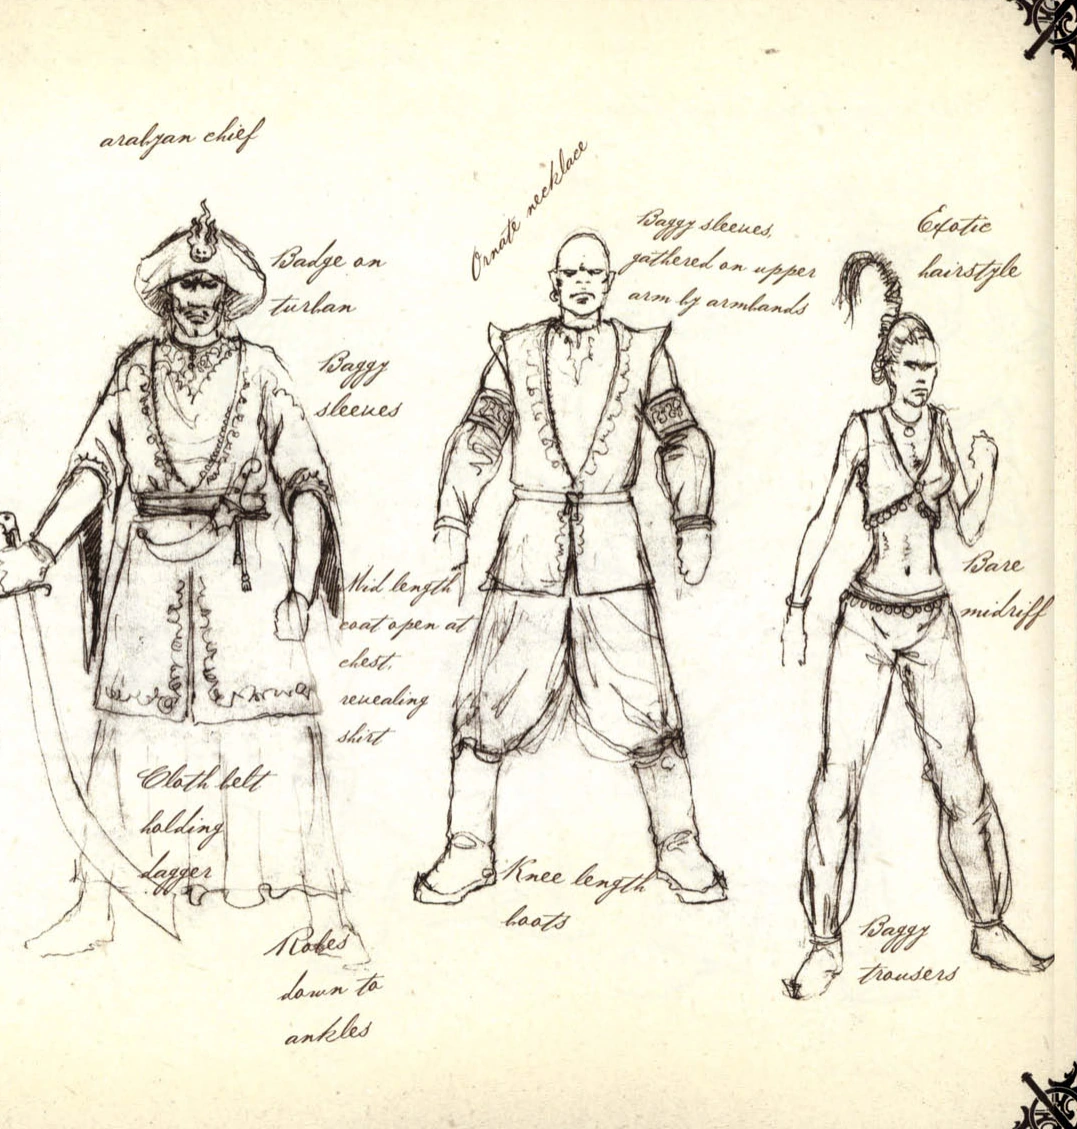 arabyan chief
Badge on
turban
Baggy
sleeves
Mid length
coat open at
chest,
revealing
shirt
Cloth belt
holding
dagger
Robes
down to
ankles
Ornate necklace
Baggy sleeves,
gathered on upper
arm by armbands
Knee length
boots
Exotic
hairstyle
Bare
midriff
Baggy
trousers